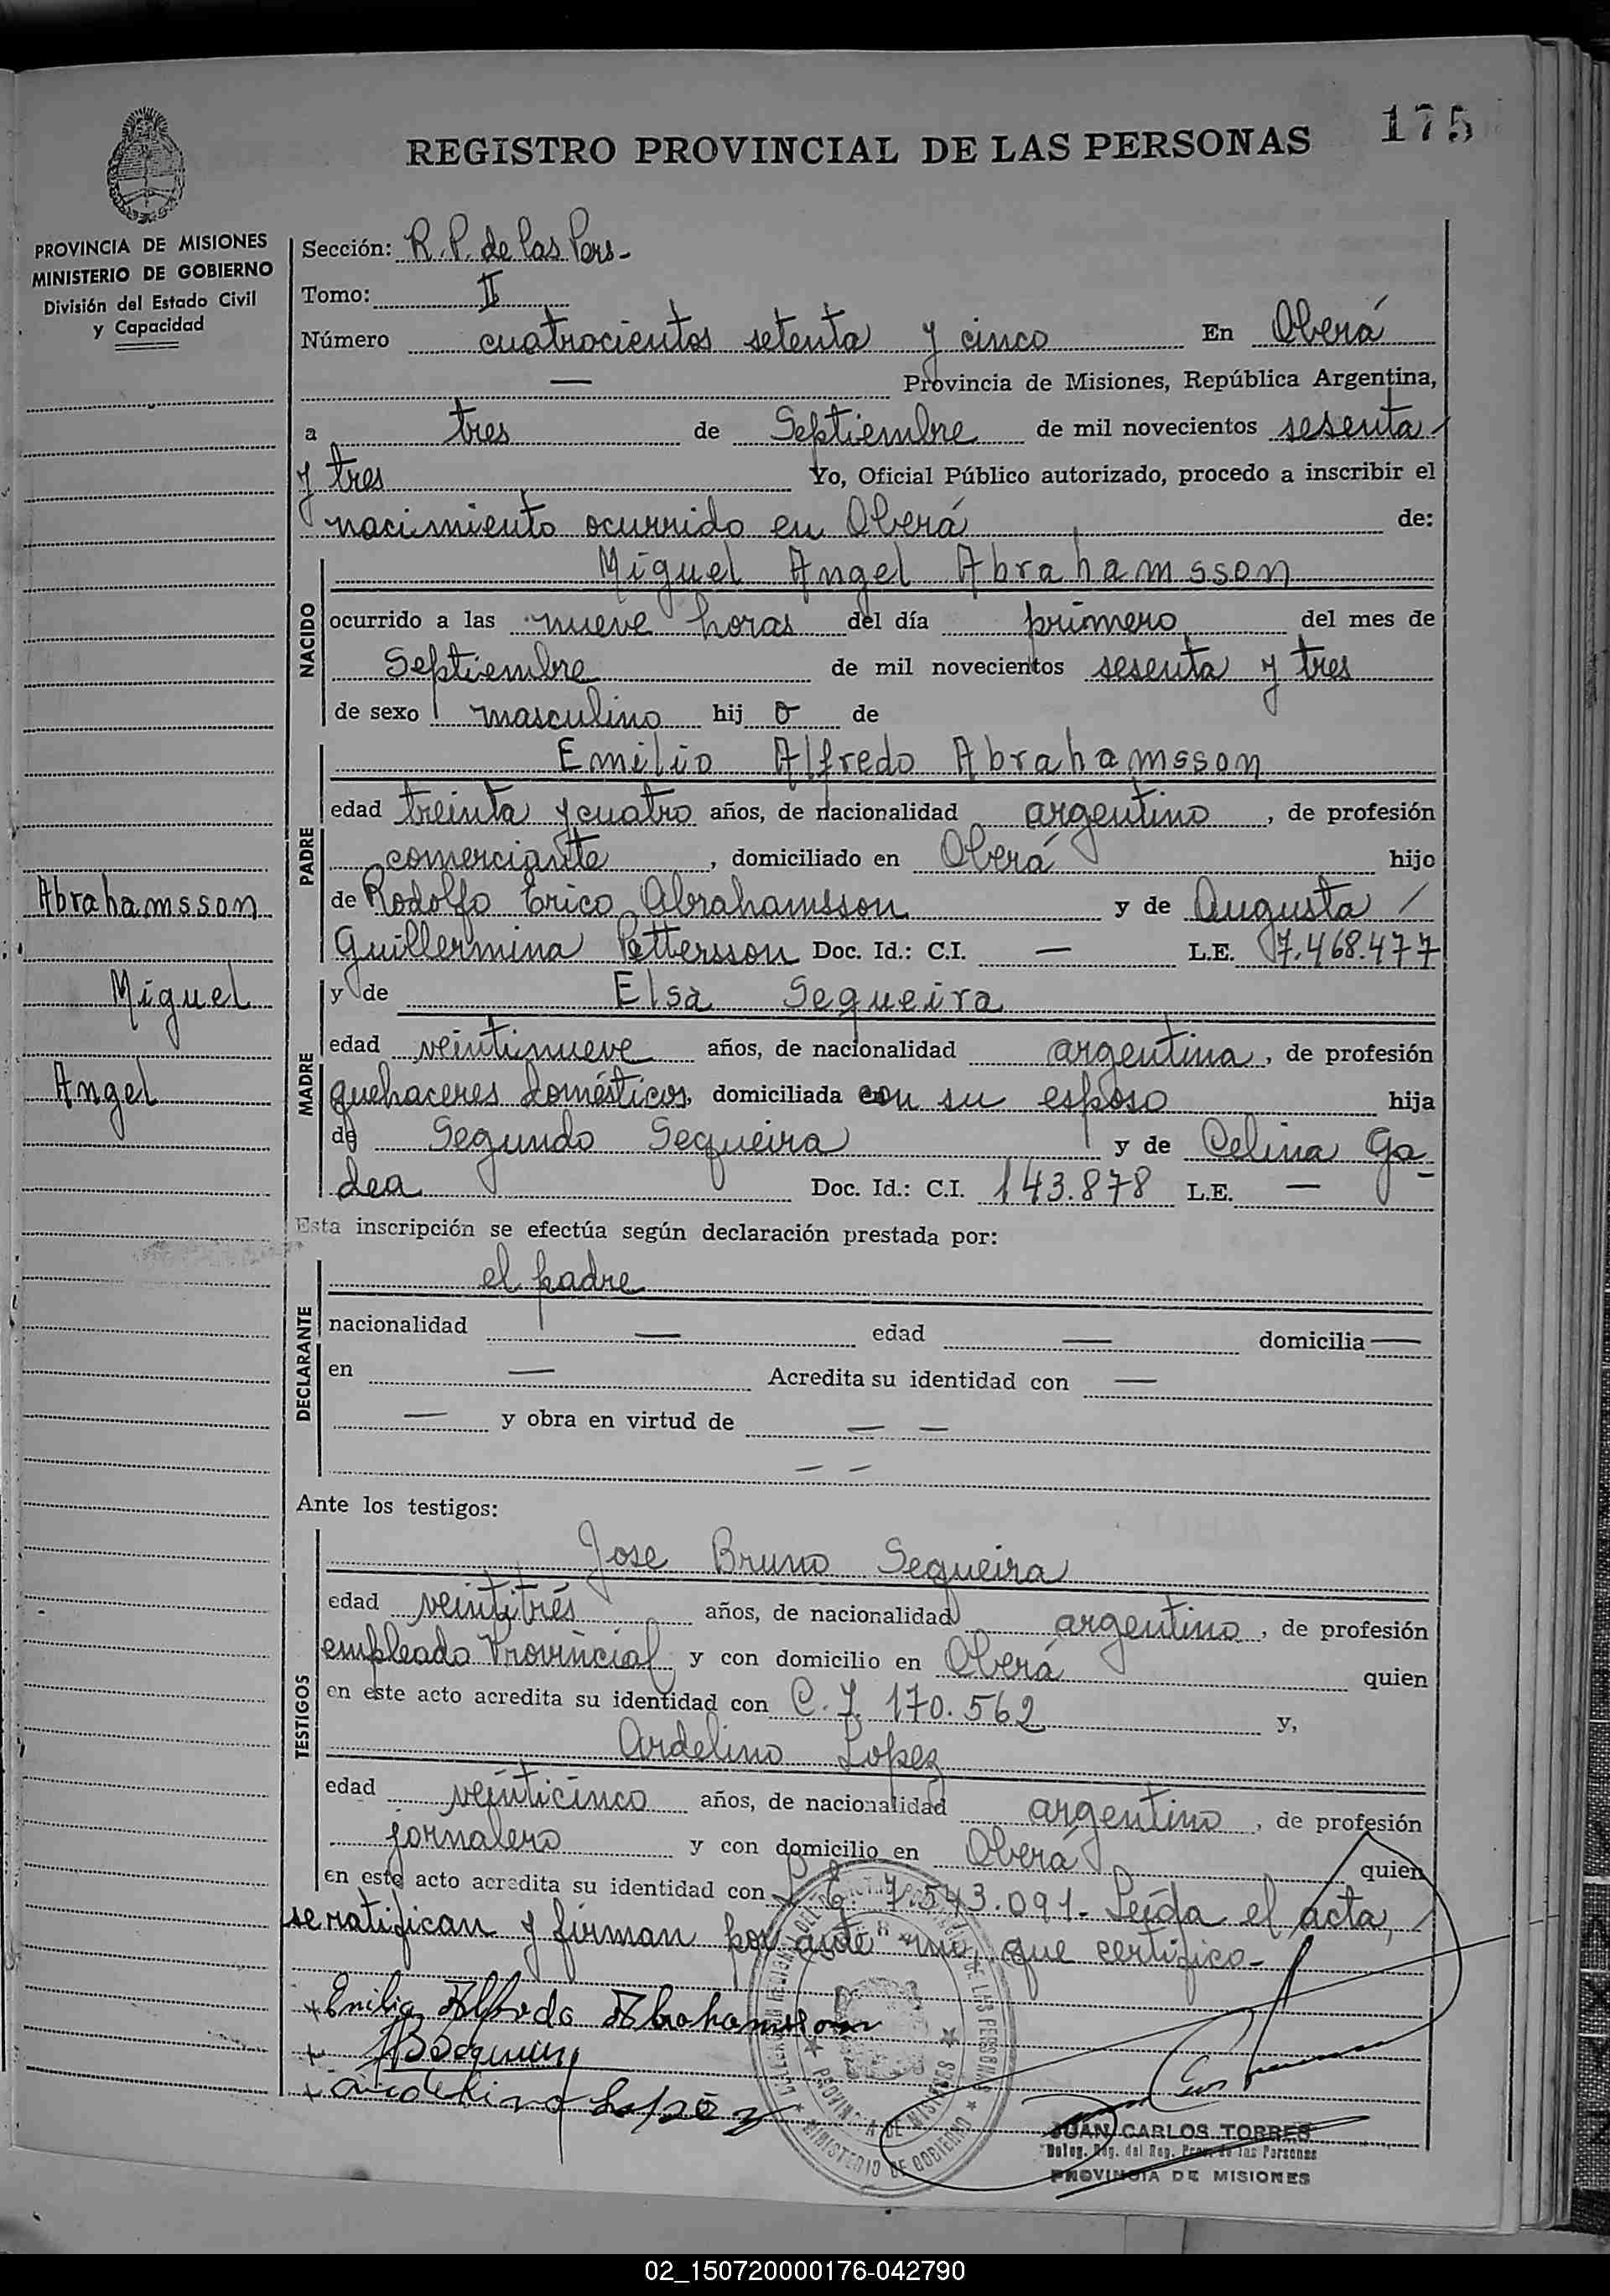 175
REGISTRO PROVINCIAL DE LAS PERSONAS
PROVINCIA DE MISIONES
MINISTERIO DE GOBIERNO
División del Estado Civil
y Capacidad
Abrahamsson
Miguel
Angel
Sección: R. P. de las Pers-
Tomo: II
Número cuatrocientos setenta y cinco En Oberá
— Provincia de Misiones, República Argentina,
a tres de Septiembre de mil novecientos sesenta
y tres Yo, Oficial Público autorizado, procedo a inscribir el
nacimiento ocurrido en Oberá de:
NACIDO
Miguel Angel Abrahamsson
ocurrido a las nueve horas del día primero del mes de
Septiembre de mil novecientos sesenta y tres
de sexo masculino hij o de
PADRE
Emilio Alfredo Abrahamsson
edad treinta y cuatro años, de nacionalidad argentino, de profesión
comerciante, domiciliado en Oberá hijo
de Rodolfo Erico Abrahamsson y de Augusta /
Guillermina Pettersson Doc. Id.: C.I. — L.E. 7.468.477
MADRE
y de Elsa Sequeira
edad veintinueve años, de nacionalidad argentina, de profesión
quehaceres domésticos, domiciliada con su esposo hija
de Segundo Sequeira y de Celina Ga-
dea Doc. Id.: C.I. 143.878 L.E. —
Esta inscripción se efectúa según declaración prestada por:
DECLARANTE
el padre
nacionalidad — edad — domicilia —
en — Acredita su identidad con —
— y obra en virtud de — —
— —
Ante los testigos:
TESTIGOS
Jose Bruno Sequeira
edad veintitrés años, de nacionalidad argentino, de profesión
empleado Provincial y con domicilio en Oberá quien
en este acto acredita su identidad con C. I. 170.562 y,
Ardelino Lopez
edad veinticinco años, de nacionalidad argentino, de profesión
jornalero y con domicilio en Oberá quien
en este acto acredita su identidad con L. E. 7.543.091- Leída el acta, /
se ratifican y firman por ante mi, que certifico-
+ Emilio Alfredo Abrahamsson
+ JBSequeira
+ Ardelino Lopez
PROVINCIA DE MISIONES
MINISTERIO DE GOBIERNO
JUAN CARLOS TORRES
Deleg. Reg. del Reg. Prov. de las Personas
PROVINCIA DE MISIONES
02_150720000176-042790